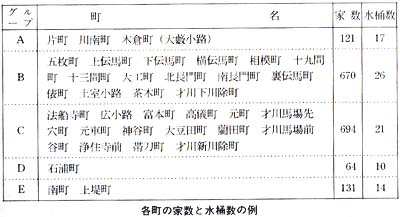 グループ 町 名 家数 水桶数
A 片町 川南町 木倉町（大藪小路） 121 17
B 五枚町 上伝馬町 下伝馬町 横伝馬町 相模町 十九間
町 十三間町 大工町 北長門町 南長門町 裏伝馬町
俵町 土室小路 茶木町 才川下川除町 670 26
C 法船寺町 広小路 富本町 高儀町 元町 才川馬場先
穴町 元車町 神谷町 大豆田町 蘭田町 才川馬場前
谷町 浄住寺前 帯刀町 才川新川除町 694 21
D 石浦町 64 10
E 南町 上堤町 131 14
各町の家数と水桶数の例